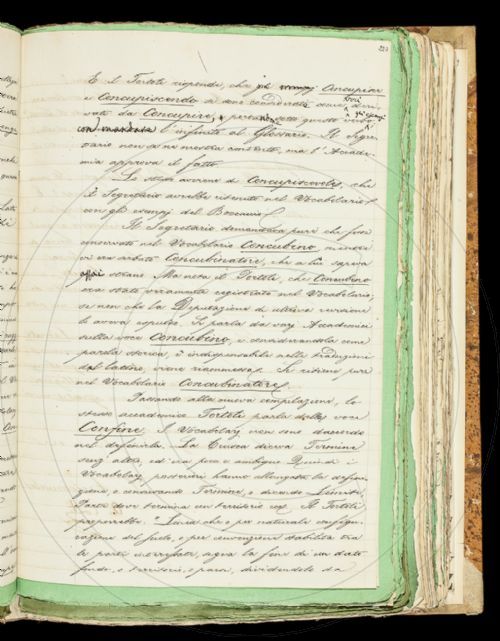 E il Tortoli risponde, che gli esempj Concupire
e Concupiscendo si sono considerati come voci deri-
vate da Concupire, e però con questo verbo gli esempj
con mandata l'infinito al Glossario. Il Segre-
tario non se ne mostra contento, ma l'Accade-
mia approva il fatto.
Lo stesso avviene di Concupiscevole, che
il Segretario avrebbe ritenuto nel Vocabolario
con gli esempj del Boccaccio.
Il Segretario domandava pure che fosse
conservato nel Vocabolario Concubino, mentre
vi era notato Concubinatore, che a lui sapeva
assai strano. Ma nota il Tortoli, che Concubino
era stato veramente registrato nel Vocabolario,
se non che la Deputazione di ultima revisione
lo aveva espulso. Si parla da varj Accademici
sulla voce Concubino, e considerandola come
parola storica, è indispensabile nelle traduzioni
dal latino, viene riammessa. Si ritiene pure
nel Vocabolario Concubinatore.
Passando alla nuova compilazione, lo
stesso accademico Tortoli parla della voce
Confine. I Vocabolarj non sono d'accordo
nel definirla. La Crusca diceva Termine
senz'altro, ed era poco e ambiguo. Quindi i
Vocabolarj posteriori hanno allungata la defini-
zione, o conservando Termine, o dicendo Limite,
Parte dove termina un territorio ecc. Il Tortoli
proporrebbe: "Linea che o per naturale configu-
razione del suolo, o per convenzione stabilita tra
le parti interessate, segna la fine di un dato
fondo, o territorio, o paese, dividendolo da